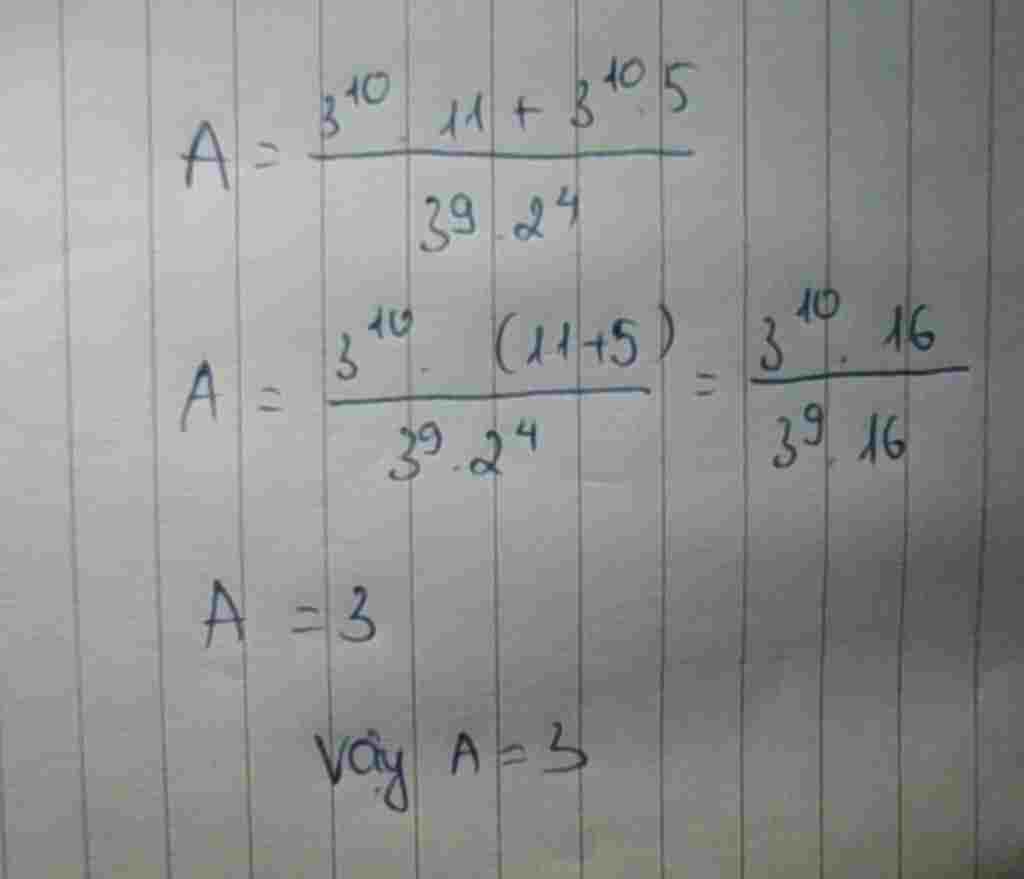 A = \frac{3^{10} . 11 + 3^{10} . 5}{3^9 . 2^4}
A = \frac{3^{10} . (11+5)}{3^9 . 2^4} = \frac{3^{10} . 16}{3^9 . 16}
A = 3
Vậy A = 3